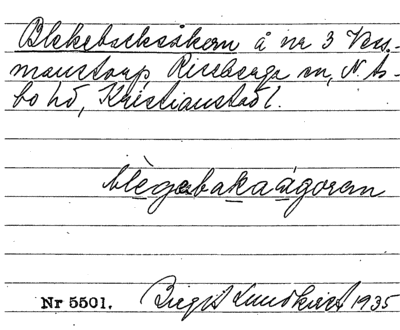 Blekebacksåkern å nr 3 Väs-
manstorp Riseberga sn, N. Ås-
bo hd, Kristianstad l.
blègebakaågoren
Nr 5501. Birgit Lundkvist 1935